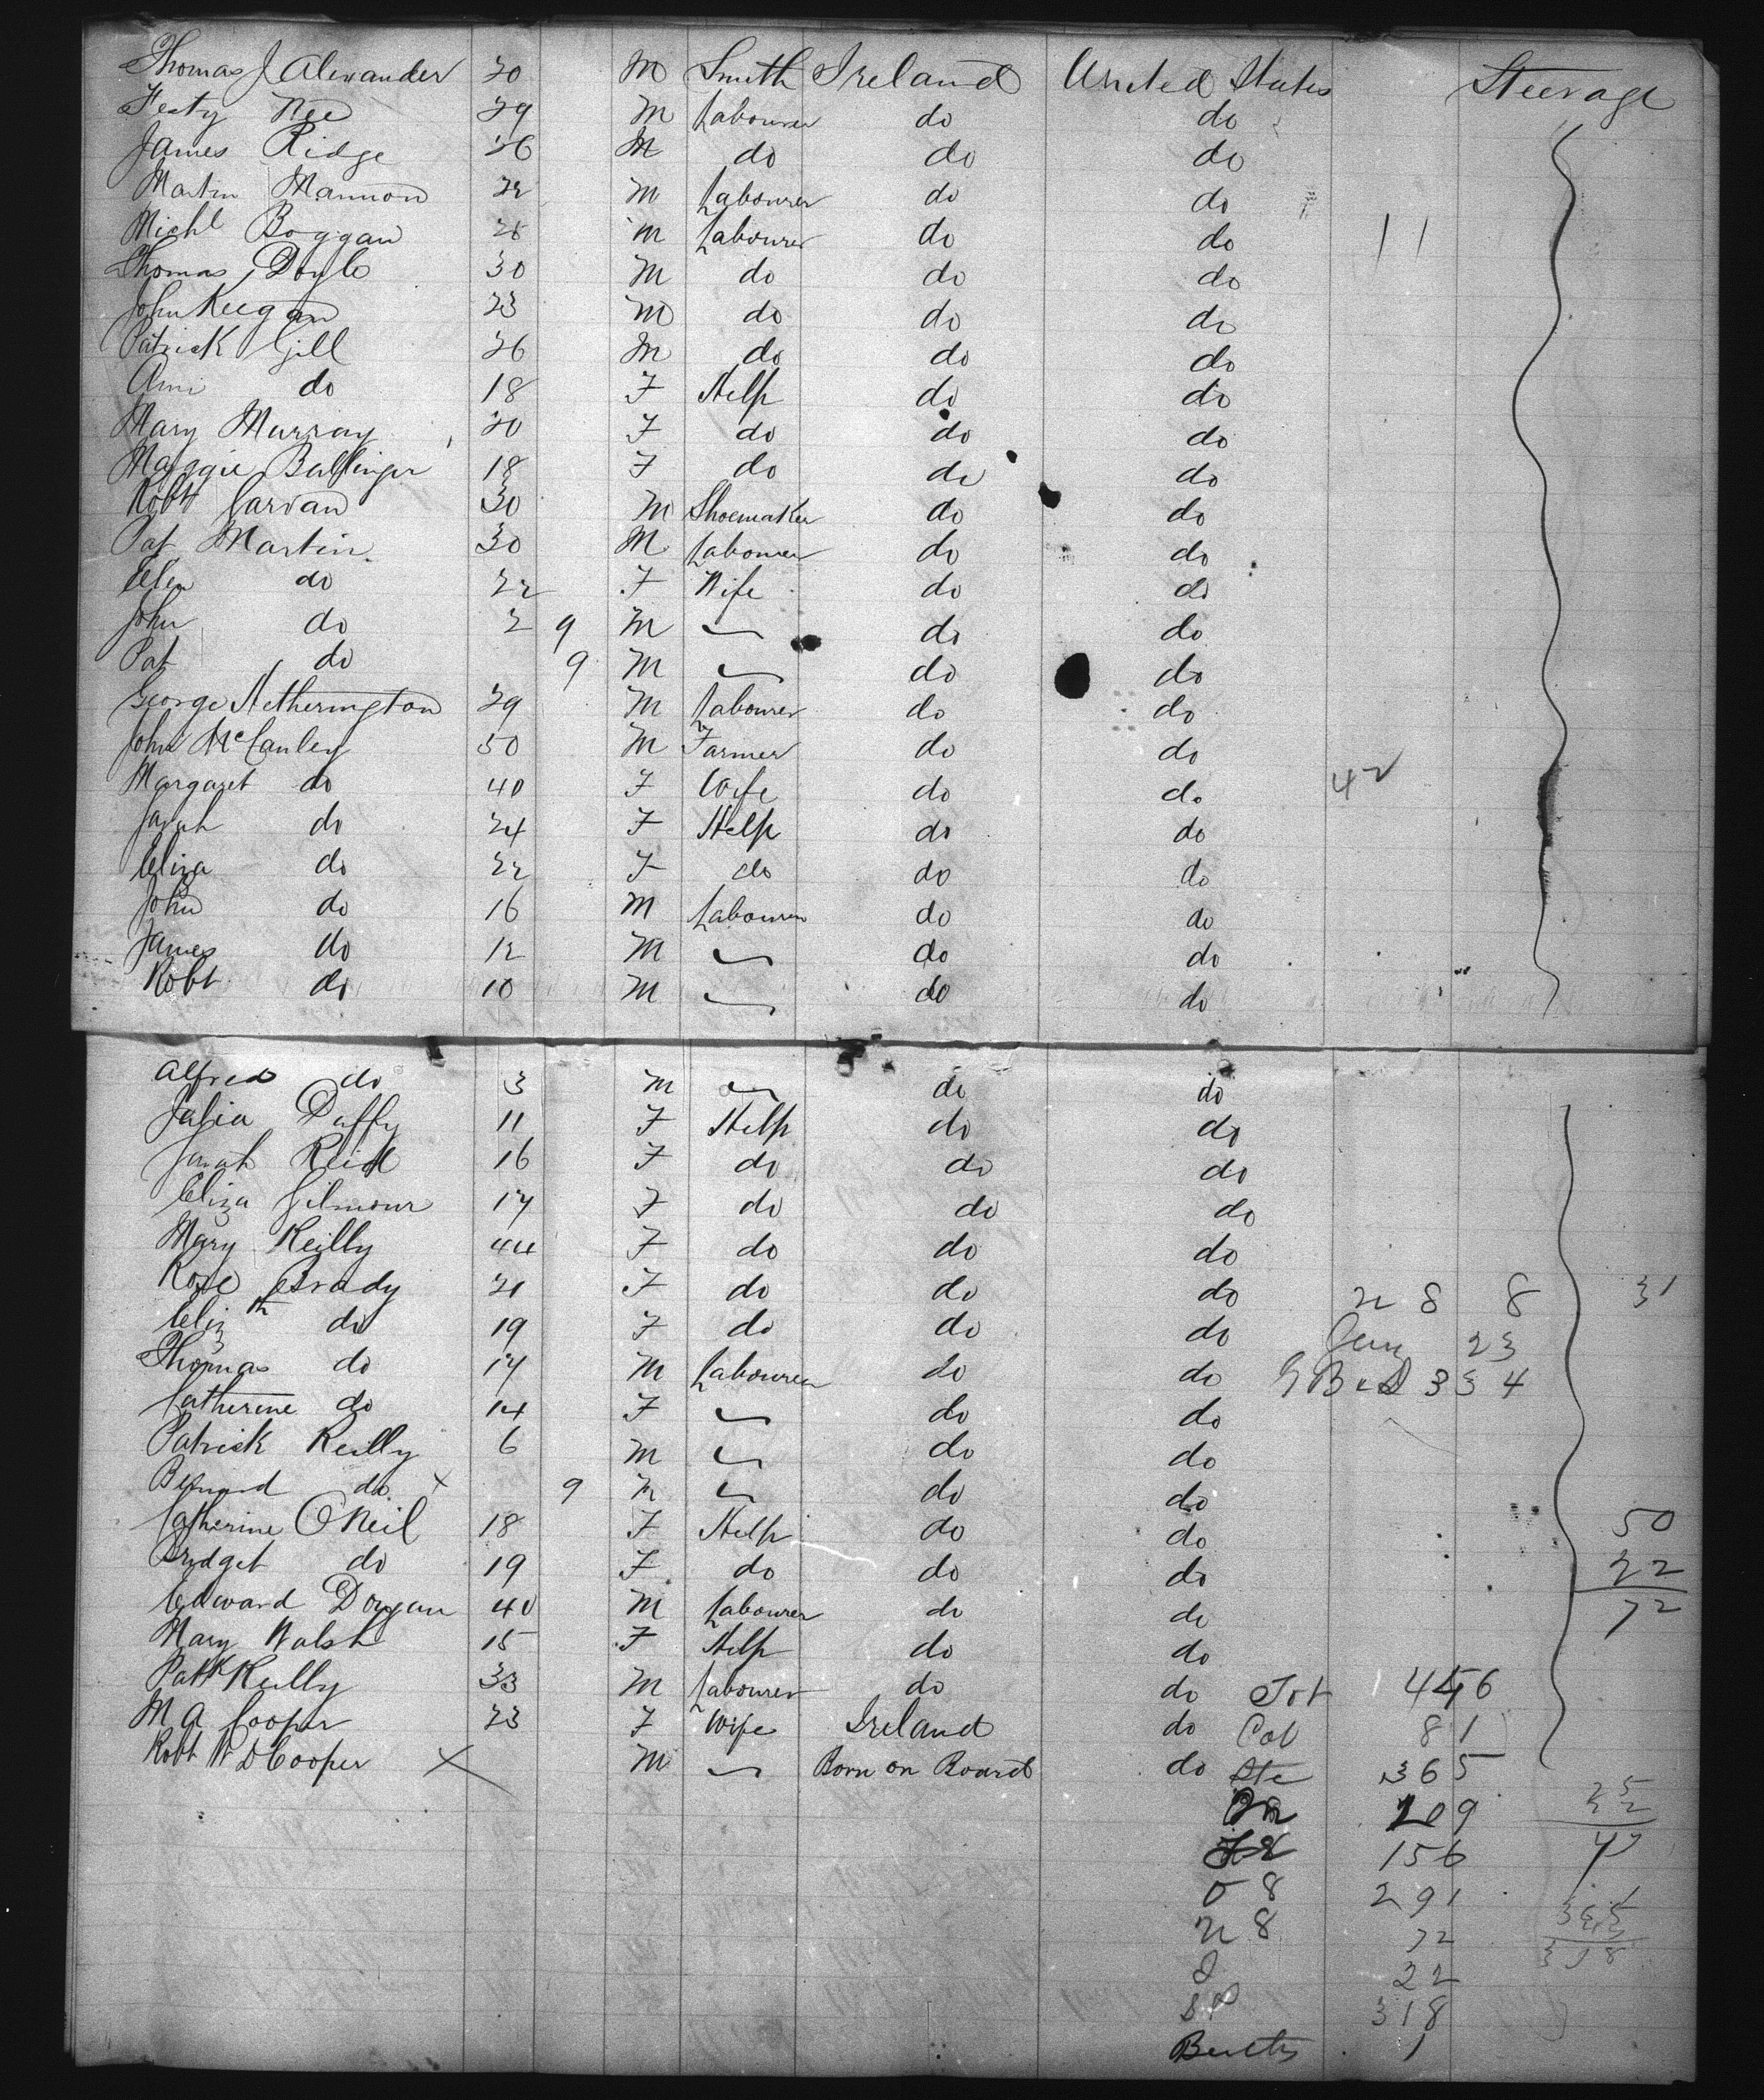 Thomas J Alexander 20 M Smith Ireland United States Steerage
Festy Nee 29 M Labourer do do
James Ridge 26 M do do do
Martin Mannion 22 M Labourer do do
Michl Boggan 25 M Labourer do do 11
Thomas Doyle 30 M do do do
John Keegan 23 M do do do
Patrick Gill 26 M do do do
Ann do 18 F Help do do
Mary Murray 20 F do do do
Maggie Ballinger 18 F do do do
Robt Garvan 30 M Shoemaker do do
Pat Martin 30 M Labourer do do
Ellen do 22 F Wife do do
John do 2 9 M do do
Pat do 9 M do do
George Hetherington 29 M Labourer do do
John McCauley 50 M Farmer do do
Margaret do 40 F Wife do do 42
Sarah do 24 F Help do do
Eliza do 22 F do do do
John do 16 M Labourer do do
James do 12 M do do
Robt do 10 M do do
Alfred do 3 M do do
Julia Duffy 11 F Help do do
Sarah Reid 16 F do do do
Eliza Gilmour 17 F do do do
Mary Reilly 44 F do do do
Rose Brady 21 F do do do n 8 8 31
Elizth do 19 F do do do Ger 23
Thomas do 17 M Labourer do do G B & D 334
Catherine do 14 F do do
Patrick Reilly 6 M do do
Bernard do x 9 M do do
Catherine ONeil 18 F Help do do 50
Bridget do 19 F do do do 22
Edward Dorgan 40 M Labourer do do 72
Mary Walsh 15 F Help do do
Patk Reilly 33 M Labourer do do Tot 446
M A Cooper 23 F Wife Ireland do Cab 81
Robt W D Cooper x M Born on Board do Ste 365
209
156
0 8 291
n 8 72
22
318
Births 1